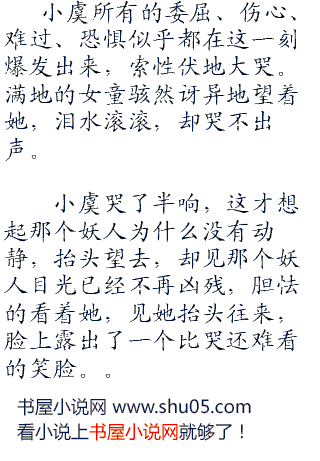 小虞所有的委屈、伤心、
难过、恐惧似乎都在这一刻
爆发出来，索性伏地大哭。
满地的女童骇然讶异地望着
她，泪水滚滚，却哭不出
声。
小虞哭了半响，这才想
起那个妖人为什么没有动
静，抬头望去，却见那个妖
人目光已经不再凶残，胆怯
的看着她，见她抬头往来，
脸上露出了一个比哭还难看
的笑脸。。
书屋小说网 www.shu05.com
看小说上书屋小说网就够了！